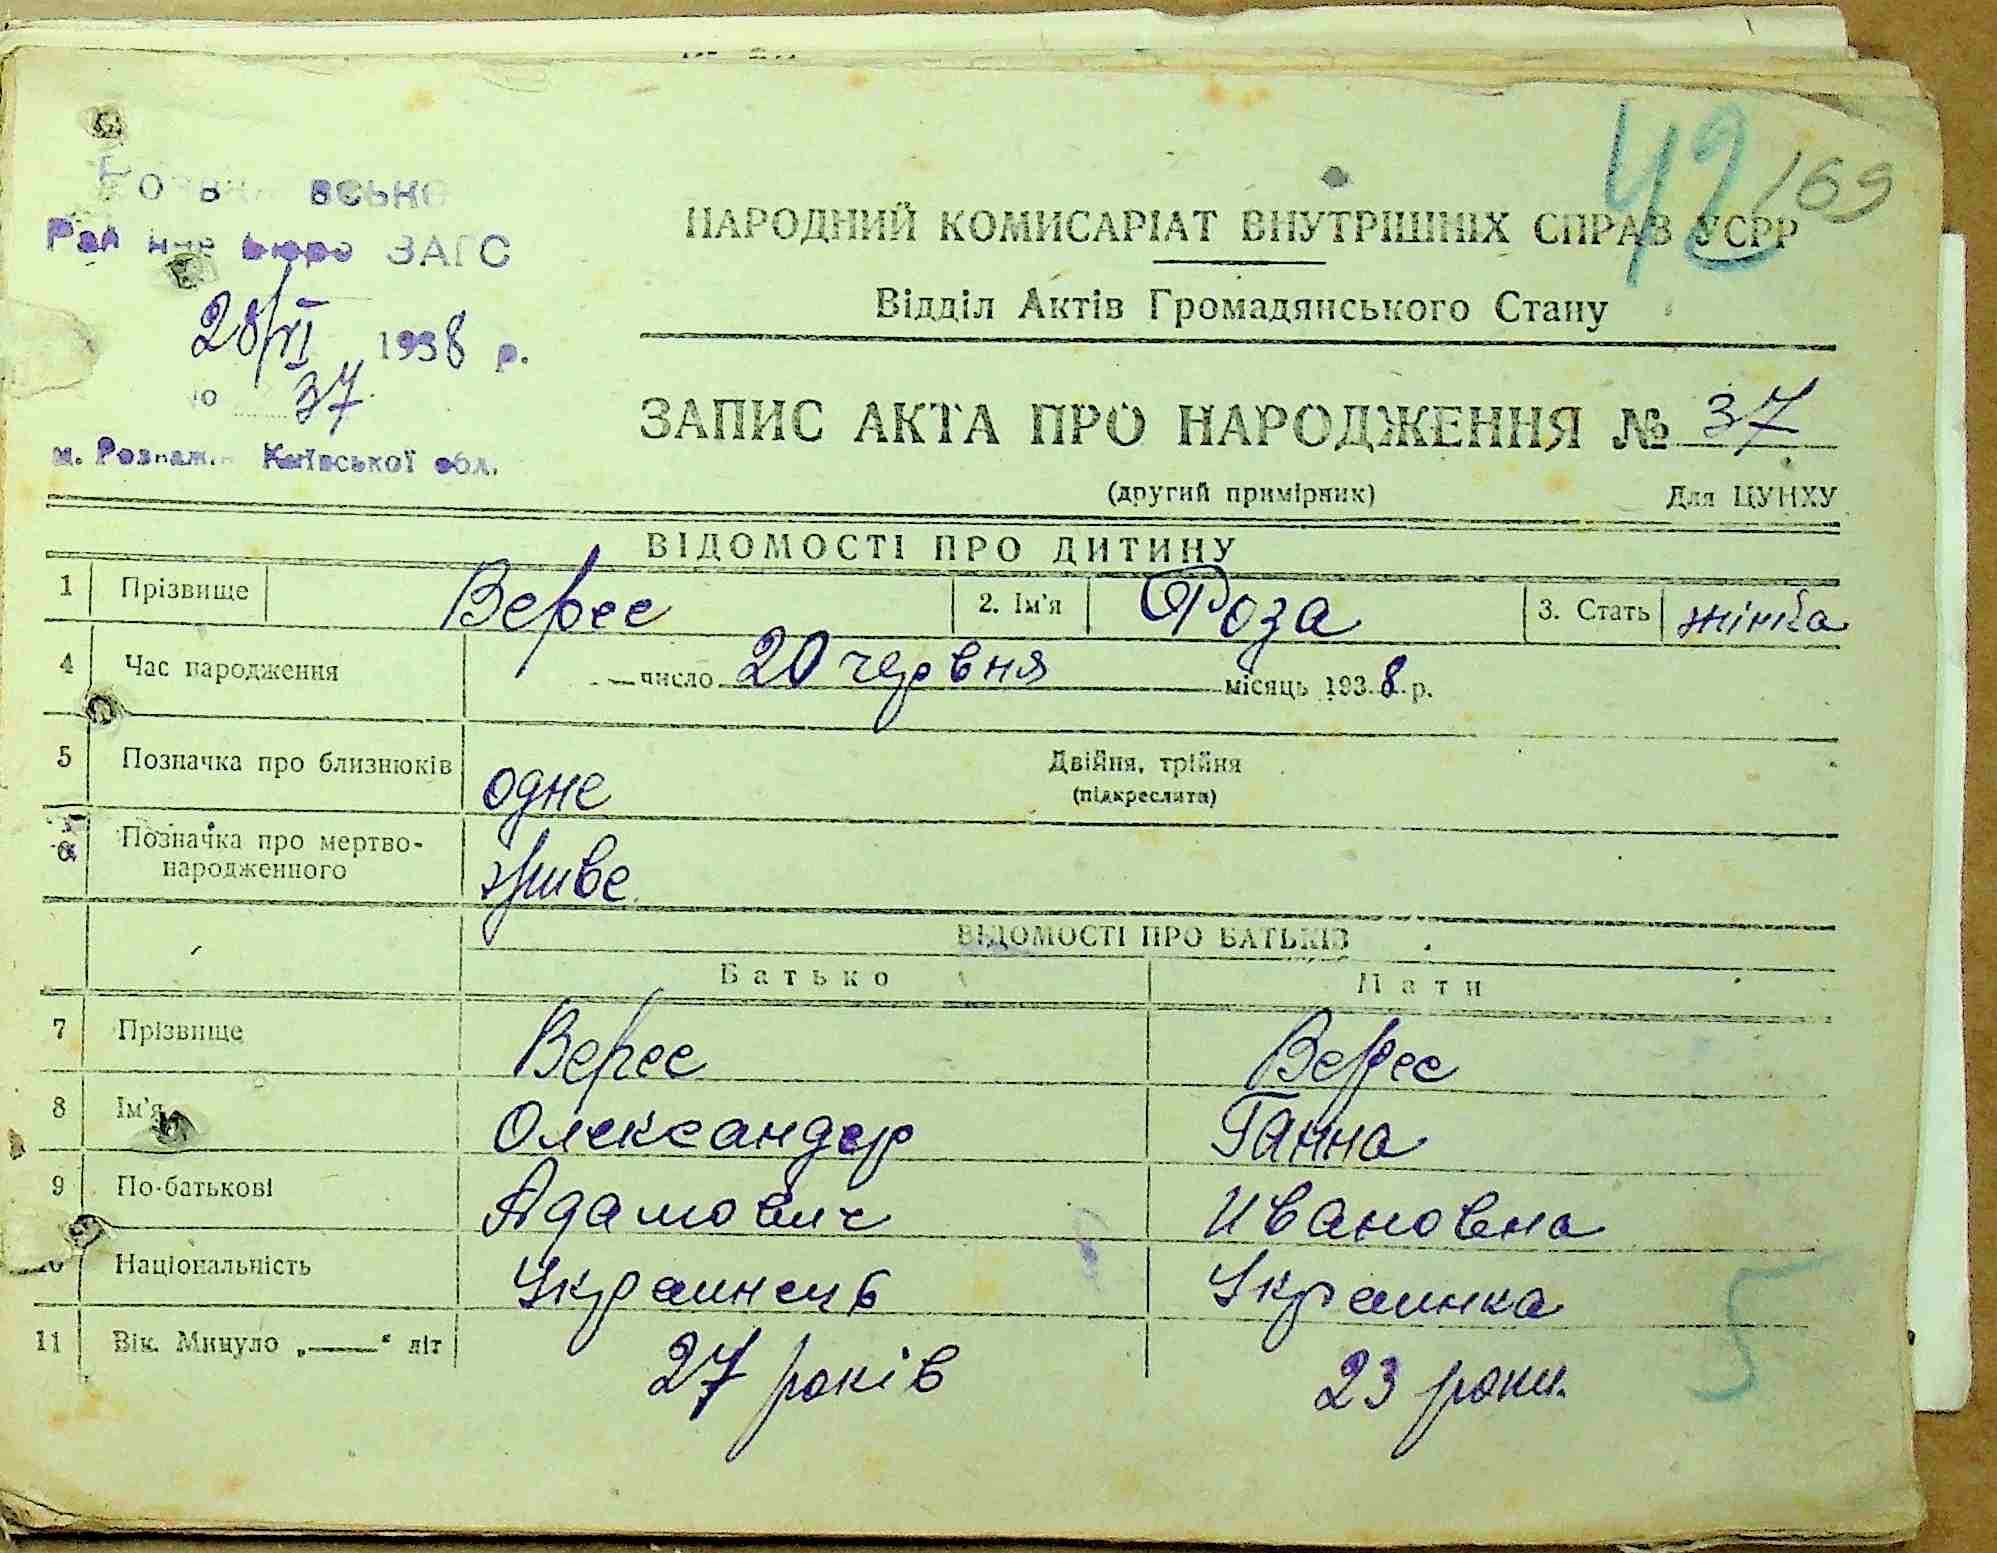 Ро всько
Рай нне бюро ЗАГС
28/VI 1938 р.
№ 37
м. Розваж. Київської обл.
49 169
НАРОДНИЙ КОМИСАРІАТ ВНУТРІШНІХ СПРАВ УСРР
Відділ Актів Громадянського Стану
ЗАПИС АКТА ПРО НАРОДЖЕННЯ № 37
(другий примірник) Для ЦУНХУ
ВІДОМОСТІ ПРО ДИТИНУ
1 Прізвище Верес 2. Ім'я Роза 3. Стать жінка
4 Час народження число 20 червня місяць 1938 р.
5 Позначка про близнюків одне Двійня, трійня
(підкреслити)
6 Позначка про мертво-
народженного живе
ВІДОМОСТІ ПРО БАТЬКІВ
Батько Мати
7 Прізвище Верес Верес
8 Ім'я Олександер Ганна
9 По-батькові Адамович Ивановна
10 Національність Украинець Украинка
11 Вік. Минуло „——“ літ 27 років 23 роки.
5